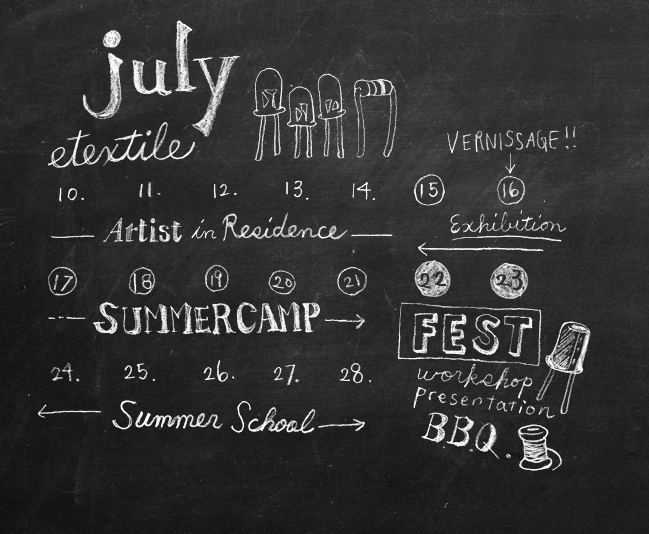 july
etextile
VERNISSAGE!!
10. 11. 12. 13. 14. 15 16
Artist in Residence
Exhibition
17 18 19 20 21 22 23
SUMMERCAMP
FEST
workshop
presentation
24. 25. 26. 27. 28.
Summer School
B.B.Q.